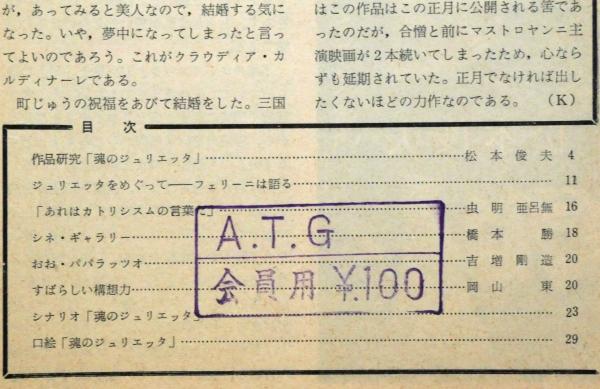 が，あってみると美人なので，結婚する気に
なった。いや，夢中になってしまったと言っ
てよいのであろう。これがクラウディア・カ
ルディナーレである。
町じゅうの祝福をあびて結婚をした。三国
はこの作品はこの正月に公開される筈であ
ったのだが，合憎と前にマストロヤンニ主
演映画が2本続いてしまったため，心なら
ずも延期されていた。正月でなければ出し
たくないほどの力作なのである。　（K）
目　次
作品研究「魂のジュリエッタ」………松本俊夫 4
ジュリエッタをめぐって――フェリーニは語る………11
「あれはカトリシズムの言葉だ」………虫明亜呂無 16
シネ・ギャラリー………橋本　勝 18
おお・パパラッツオ………吉増剛造 20
すばらしい構想力………岡山　東 20
シナリオ「魂のジュリエッタ」………23
口絵「魂のジュリエッタ」………29
A.T.G
会員用 ¥.100